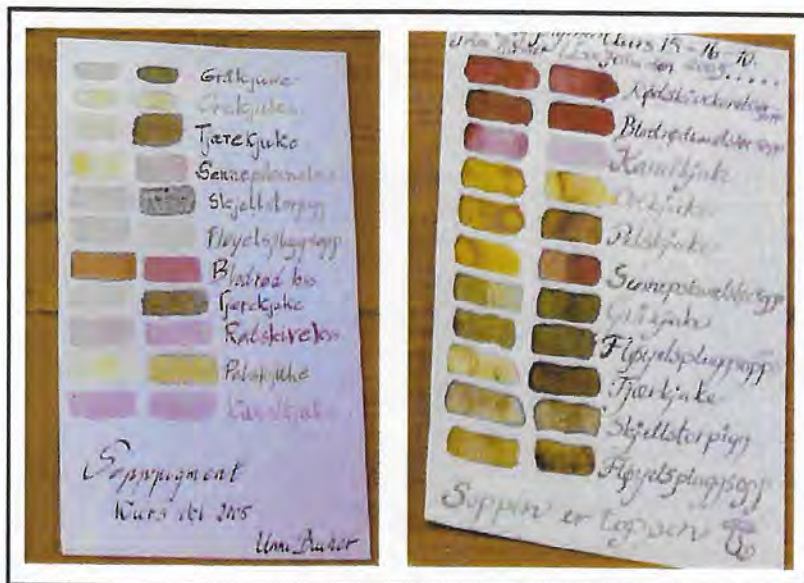 Gråkjuke
Orekjuke
Tjærekjuke
Skjellstorpigg
Fløyelspluggsopp
Blodrød
Tjærekjuke
Rødskivekss
Pelskjuke
Kanelkjuke
Sopppigment
Kurs okt 2005
kurs 15-16-10.
Blodrødkanelslørsopp
Kanelkjuke
Orekjuke
Pelskjuke
Sennepskanelslørsopp
Gråkjuke
Fløyelspluggsopp
Tjærkjuke
Skjellstorpigg
Fløyelspluggsopp
Soppen er toppen